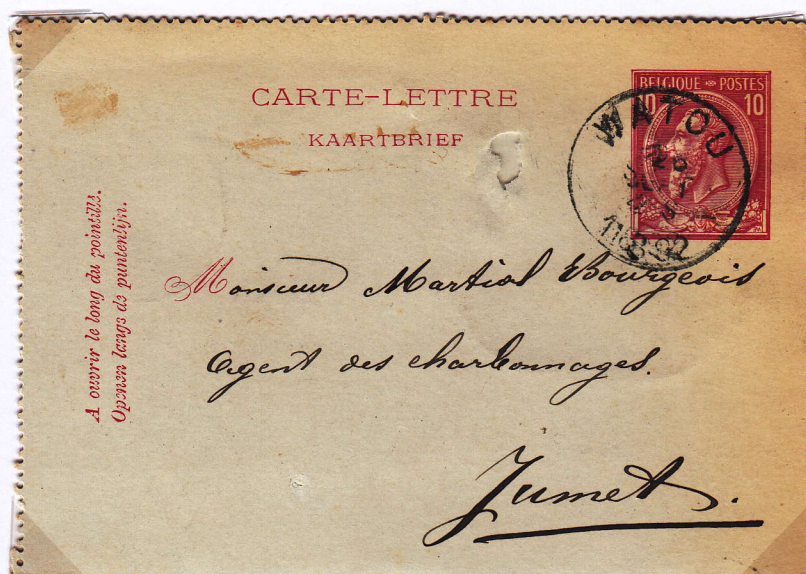 CARTE-LETTRE
KAARTBRIEF
BELGIQUE POSTES
10 10
WATOU
SEPT
1892
A ouvrir le long du pointillé.
Openen langs de puntenlijn.
Monsieur Martial Bourgeois
Agent des charbonnages.
Jumet.